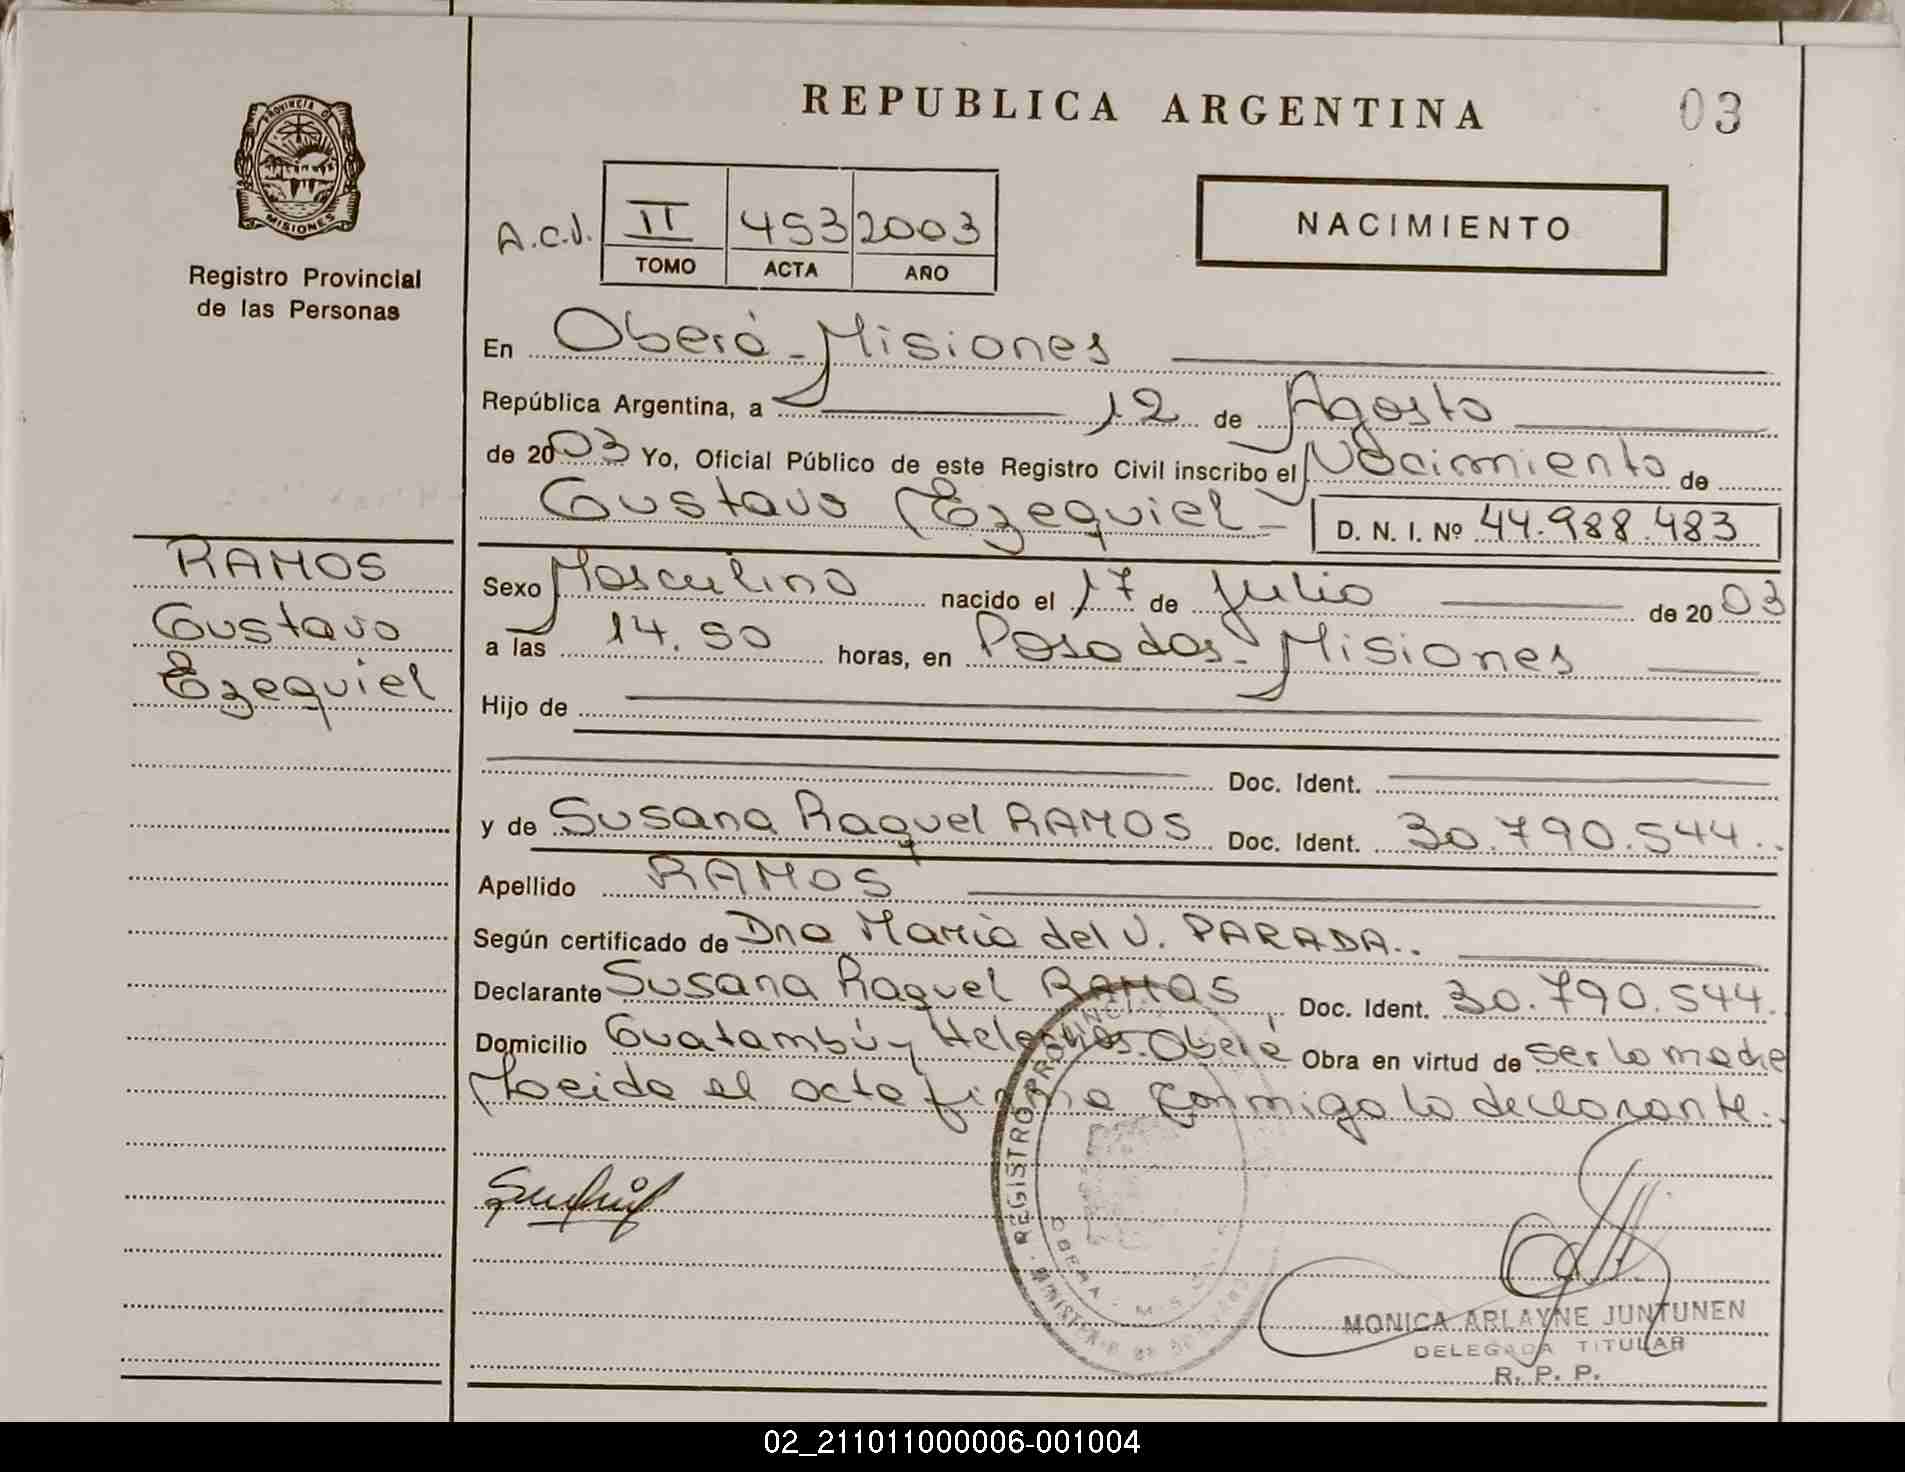 REPUBLICA ARGENTINA
03
PROVINCIA DE
MISIONES
Registro Provincial
de las Personas
A.C.J.
II 453 2003
TOMO ACTA AÑO
NACIMIENTO
En Oberá - Misiones
República Argentina, a 12 de Agosto
de 2003 Yo, Oficial Público de este Registro Civil inscribo el Nacimiento de
Gustavo Ezequiel - D. N. I. Nº 44.988.483
RAMOS
Gustavo
Ezequiel
Sexo Masculino nacido el 17 de Julio de 2003
a las 14.50 horas, en Posadas - Misiones
Hijo de
Doc. Ident.
y de Susana Raquel RAMOS Doc. Ident. 30.790.544..
Apellido RAMOS
Según certificado de Dra María del V. PARADA..
Declarante Susana Raquel RAMOS Doc. Ident. 30.790.544.
Domicilio Guatambú y Helechos. Oberá Obra en virtud de ser la madre
Leida el acta firma conmigo la declarante.
REGISTRO PROVINCIAL
OBERA - MISIONES
MONICA ARLAYNE JUNTUNEN
DELEGADA TITULAR
R. P. P.
02_211011000006-001004